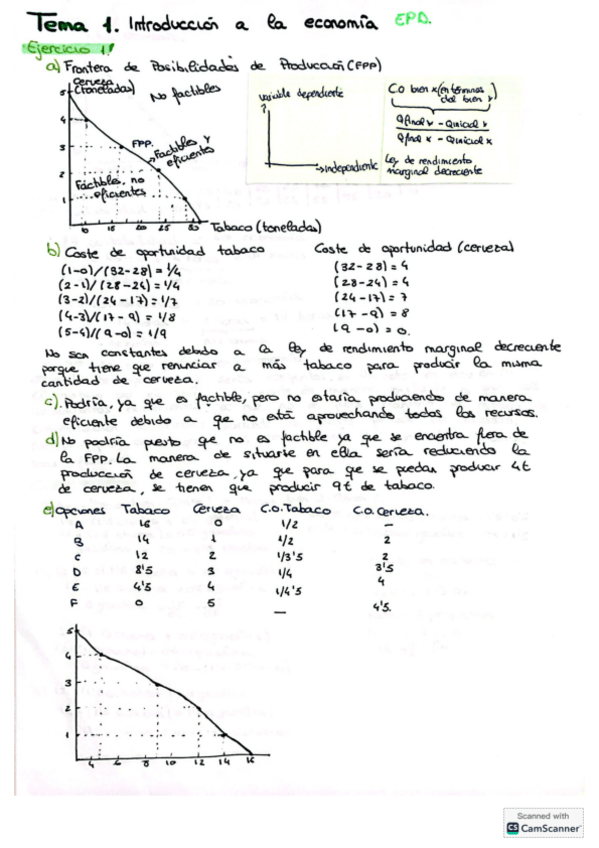 Tema 1. Introducción a la economía EPD.
Ejercicio 1.
a) Frontera de Posibilidades de Producción (FPP)
Cerveza
(toneladas)
No factibles
FPP.
Factibles y
eficientes
Factibles, no
eficientes
5
4
3
2
1
15 20 25 30
Tabaco (toneladas)
variable dependiente
?
independiente
CO bien x (en términos
del bien y)
Qfinal y - Qinicial y
Qfinal x - Qinicial x
Ley de rendimiento
marginal decreciente
b) Coste de oportunidad tabaco
(1-0)/(32-28) = 1/4
(2-1)/(28-24) = 1/4
(3-2)/(24-17) = 1/7
(4-3)/(17-9) = 1/8
(5-4)/(9-0) = 1/9
Coste de oportunidad (cerveza)
(32-28) = 4
(28-24) = 4
(24-17) = 7
(17-9) = 8
(9-0) = 0.
No son constantes debido a la ley de rendimiento marginal decreciente
porque tiene que renunciar a más tabaco para producir la misma
cantidad de cerveza.
c). Podría, ya que es factible, pero no estaría produciendo de manera
eficiente debido a que no está aprovechando todos los recursos.
d) No podría puesto que no es factible ya que se encentra fuera de
la FPP. La manera de situarse en ella sería reduciendo la
producción de cerveza, ya que para que se puedan producir 4t
de cerveza, se tienen que producir 9t de tabaco.
e) Opciones Tabaco Cerveza C.O.Tabaco C.O.Cerveza.
A 16 0 1/2 —
B 14 1 1/2 2
C 12 2 1/3'5 2
D 8'5 3 1/4 3'5
E 4'5 4 1/4'5 4
F 0 5 — 4'5.
5
4
3
2
1
4 6 8 10 12 14 16
Scanned with
CS CamScanner